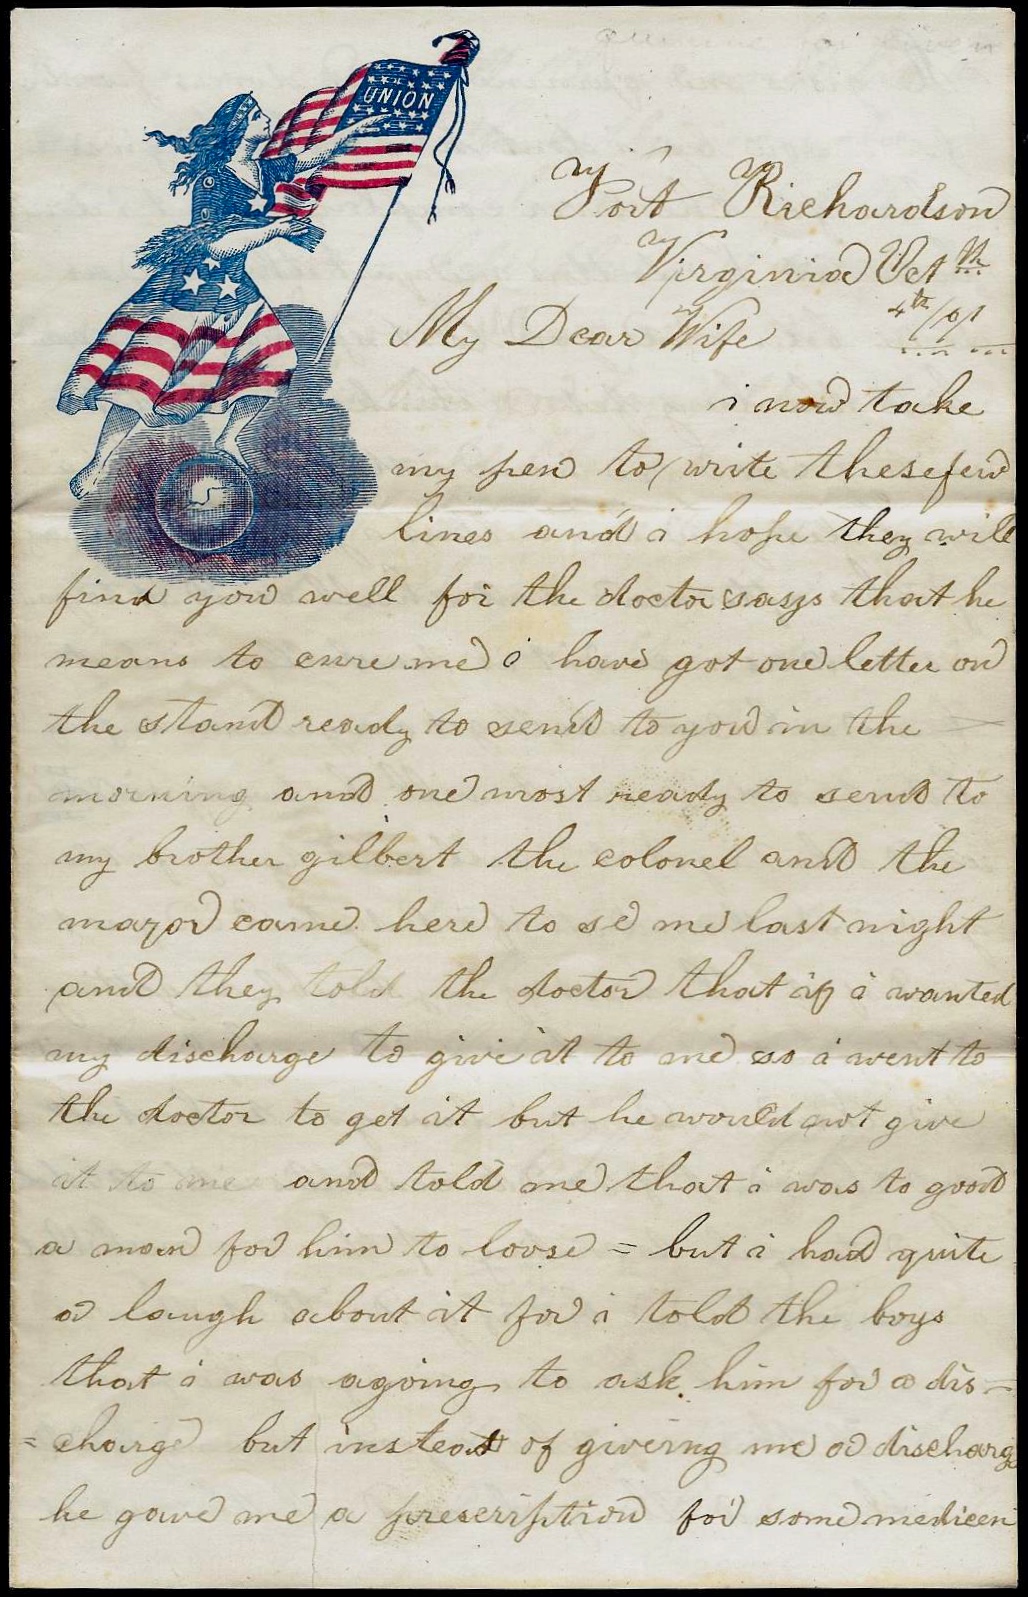 UNION
Fort Richardson
Virginia Oct th
4th/61
My Dear Wife
i now take
my pen to write these few
lines and i hope they will
find you well for the doctor says that he
means to cure me i have got one letter on
the stand ready to send to you in the
morning and one most ready to send to
my brother gilbert the colonel and the
mayor came here to se me last night
and they told the doctor that if i wanted
my discharge to give it to me so i went to
the doctor to get it but he would not give
it to me and told me that i was to good
a man for him to loose = but i had quite
a laugh about it for i told the boys
that i was agoing to ask him for a dis=
=charge but instead of givering me a discharg
he gave me a prescription for some medicen